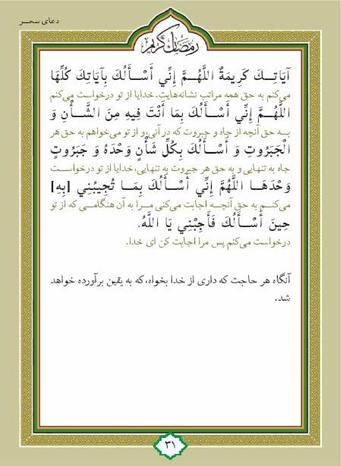 دعای سحر
رمضان کریم
آيَاتِـكَ كَرِيمَةٌ اللَّهُـمَّ إِنِّي أَسْـأَلُكَ بِآيَاتِـكَ كُلِّهَا
می‌کنم به حق همه مراتب نشانه‌هایت. خدایا از تو درخواست می‌کنم
اللَّهُـمَّ إِنِّي أَسْـأَلُكَ بِمَا أَنْتَ فِيهِ مِنَ الشَّـأْنِ وَ
بـه حـق آنچه از جاه و جبروت که در آنی و از تو می‌خواهم به حق هر
الْجَبَرُوتِ وَ أَسْـأَلُكَ بِكُلِّ شَـأْنٍ وَحْدَهُ وَ جَبَرُوتٍ
جاه به تنهایی و به حق هر جبروت به تنهایی، خدایا از تو درخواست
وَحْدَهَـا اللَّهُمَّ إِنِّي أَسْـأَلُكَ بِمَـا تُجِيبُنِي [بِهِ]
می‌کنـم به حق آنچـه اجابت می‌کنی مـرا به آن هنگامـی که از تو
حِينَ أَسْـأَلُكَ فَأَجِبْنِي يَا اللَّهُ.
درخواست می‌کنم پس مرا اجابت کن ای خدا.
آنگاه هر حاجت که داری از خدا بخواه، که به یقین برآورده خواهد
شد.
۳۱